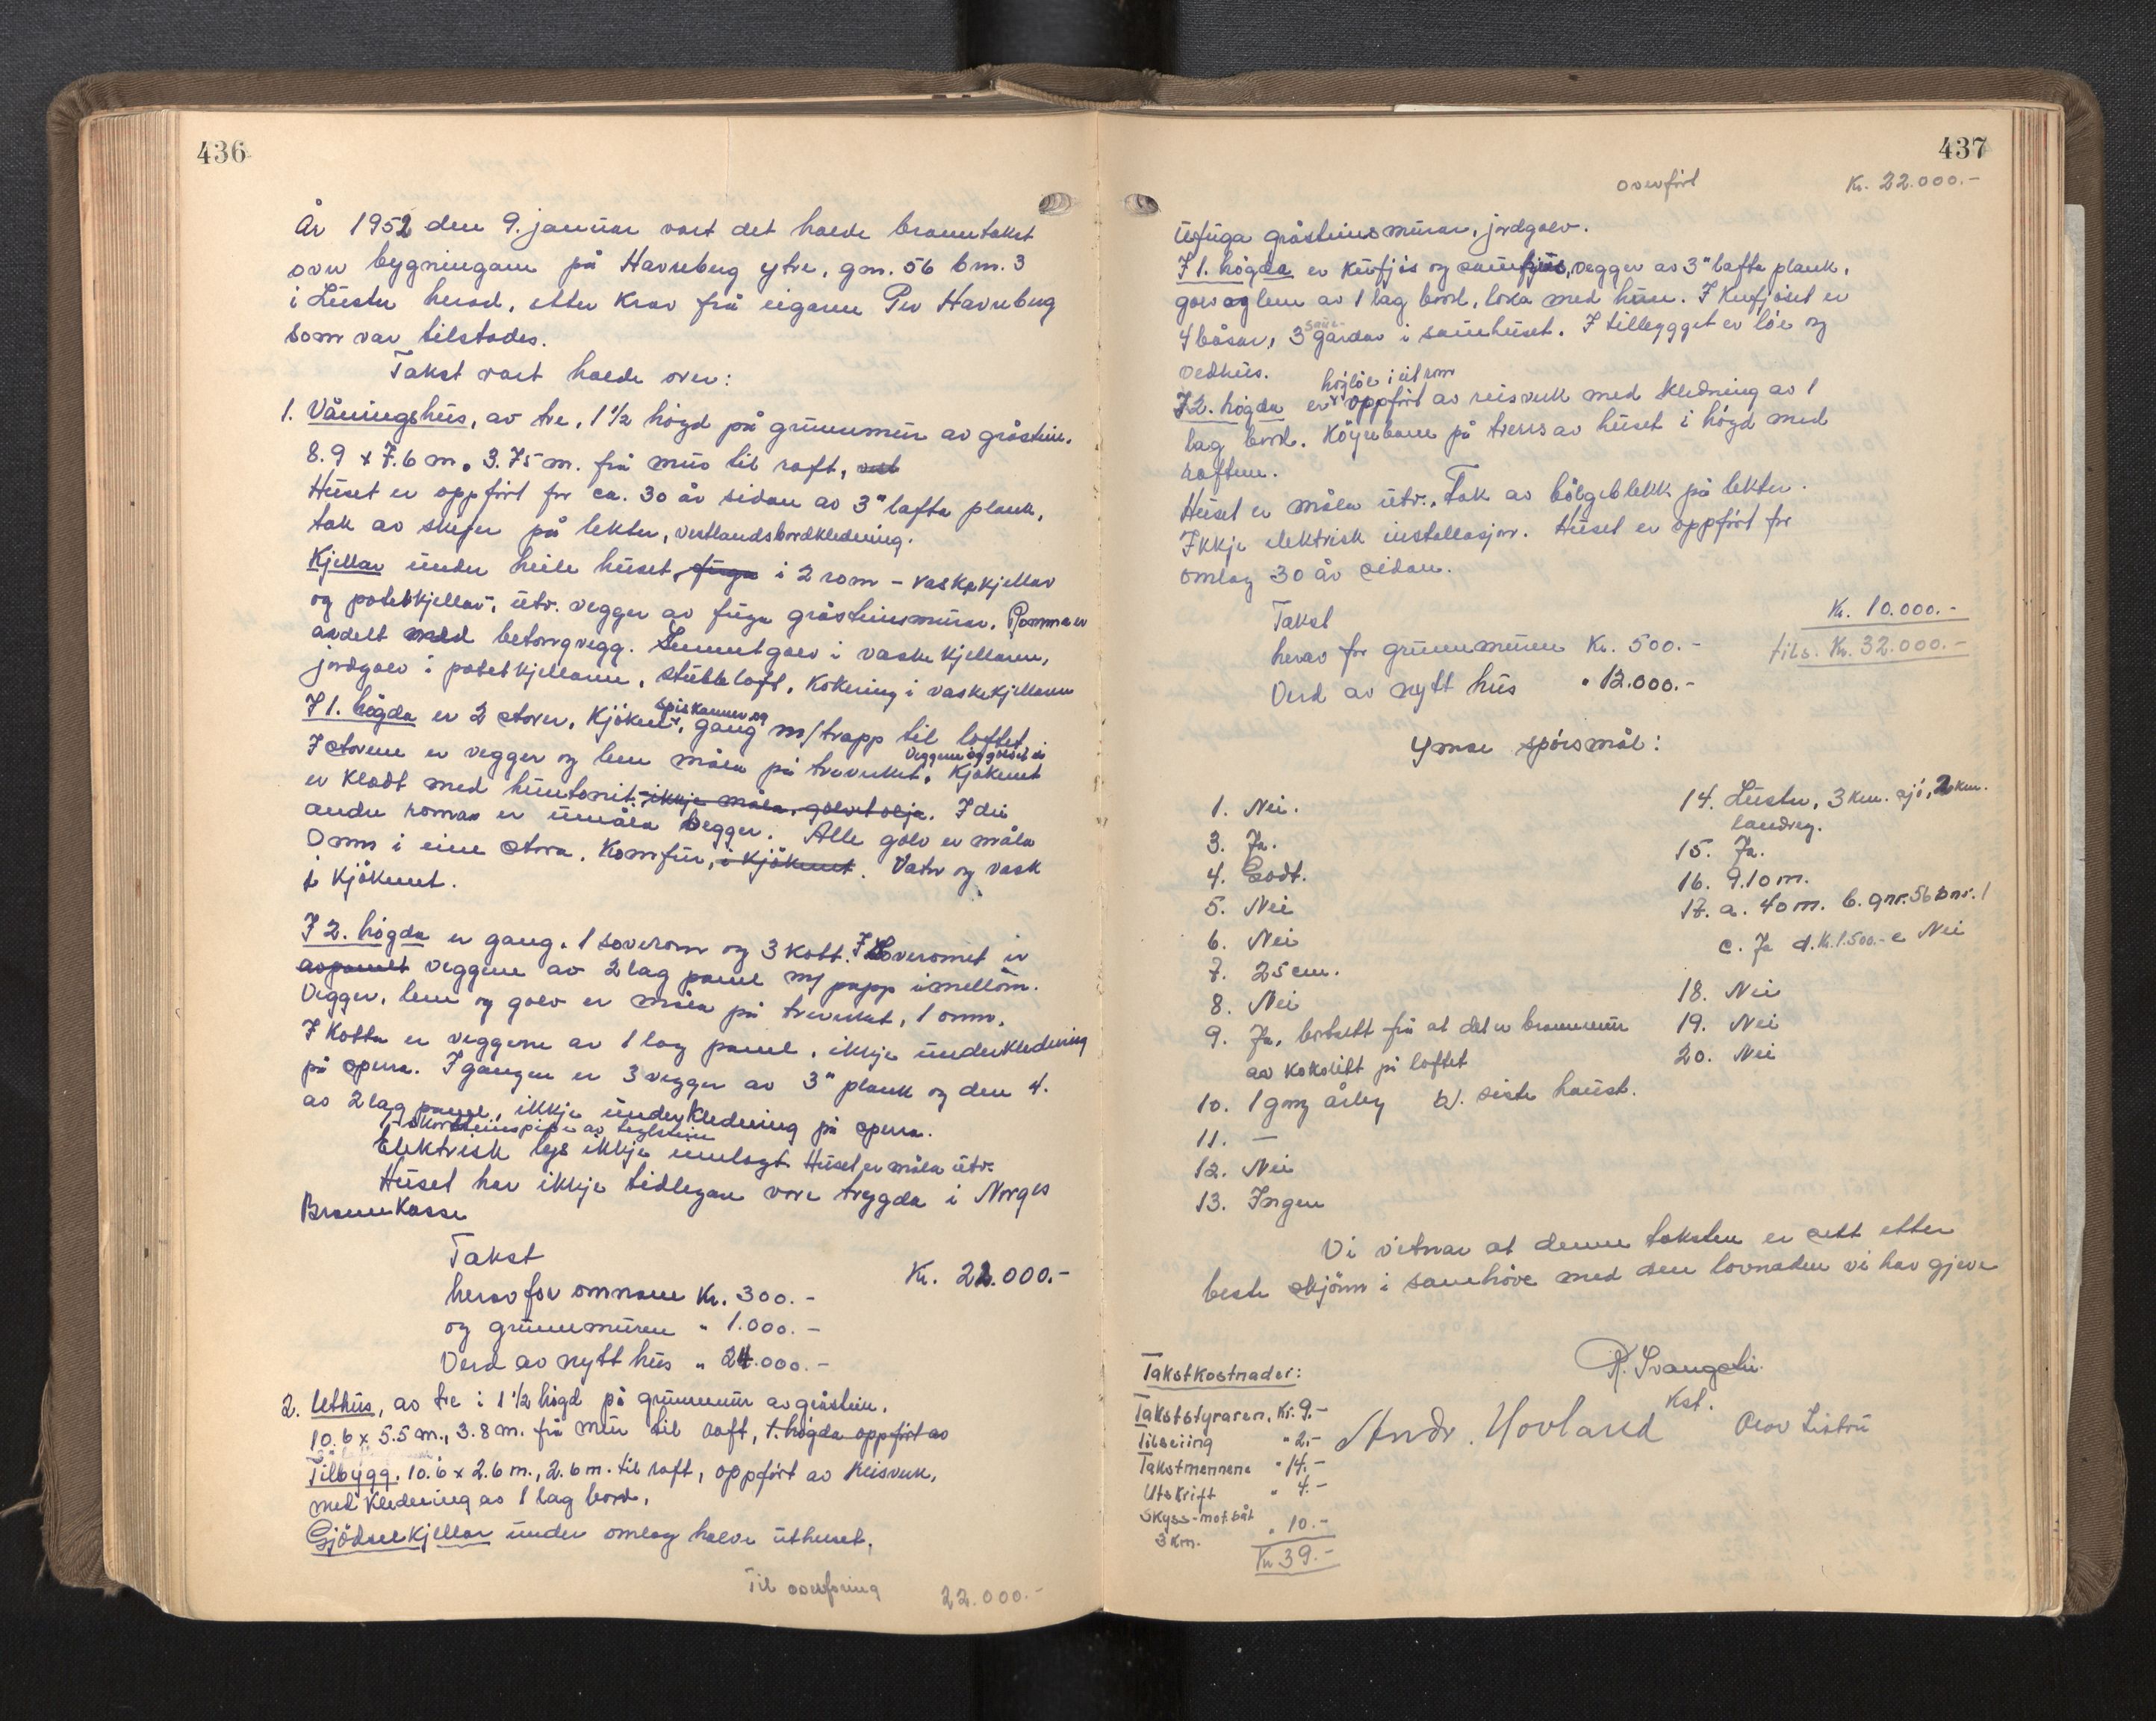 436
År 1952 den 9. januar vart det halde branntakst
over bygningane på Havneberg ytre, gnr. 56 bnr. 3
i Luster herad, etter krav frå eigaren Per Havneberg
som var tilstades.
Takst vart halde over:
1. Våningshus, av tre, 1 1/2 høgd på grunnmur av gråstein.
8.9 x 7.6 m. 3.75 m. frå mur til raft,
Huset er oppført for ca. 30 år sidan av 3" lafta plank,
tak av skifer på lekter, vestlandsbordkledning.
Kjellar under heile huset, fuga i 2 rom - vaskekjellar
og potetkjellar, utv. vegger av fuga gråsteinsmurar. Romma er
avdelt med betongvegg. Sementgolv i vaskekjellaren,
jordgolv i potetkjellaren, stubbloft, kokering i vaskekjellaren
I 1. høgda er 2 stover, kjøken, spiskammer og gang m/trapp til loftet
I stovene er vegger og lem måla på treverket. Veggene og golvet i kjøkenet
er kledt med huntonit, ikkje måla, golvet olja. I dei
andre romma er umåla vegger. Alle golv er måla
Omn i eine stova. Komfur, i kjøkenet. Vatn og vask
i kjøkenet.
I 2. høgda er gang, 1 soverom og 3 kott. I soverommet er
avpanelt veggene av 2 lag panel m/ papp imellom.
Vegger, lem og golv er måla på treverket, 1 omn.
I kotta er veggene av 1 lag panel, ikkje underkledning
på sperra. I gangen er 3 vegger av 3" plank og den 4.
av 2 lag panel, ikkje underkledning på sperra.
1 skorsteinspipe av teglstein
Elektrisk lys ikkje innlagt. Huset er måla utv.
Huset har ikkje tidlegare vore trygda i Norges
Brannkasse
Takst Kr. 22.000.-
herav for omnane Kr. 300.-
og grunnmuren " 1.000.-
Verd av nytt hus " 24.000.-
2. Uthus, av tre i 1 1/2 høgd på grunnmur av gråstein.
10.6 x 5.5 m., 3.8 m. frå mur til raft, 1. høgda oppført av
Tilbygg. 10.6 x 2.6 m., 2.6 m. til raft, oppført av reisverk,
med kledning av 1 lag bord.
Gjødselkjellar under omlag halve uthuset,
Til overføring 22.000.-
437
overført Kr. 22.000.-
ufuga gråsteinsmurar, jordgolv.
I 1. høgda er kufjøs og sauefjøs, vegger av 3" lafta plank,
golv og lem av 1 lag bord, loka med hun. I kufjøset er
4 båsar, 3 saue gardar i sauehuset. I tillegget er løe og
vedhus.
I 2. høgda er høyløe i eit rom oppført av reisverk med kledning av 1
lag bord. Köyrebane på tverrs av huset i høgd med
raftene.
Huset er måla utv. Tak av bölgeblekk på lekter.
Ikkje elektrisk installasjon. Huset er oppført for
omlag 30 år sidan.
Takst Kr. 10.000.-
herav for grunnmuren Kr. 500.- tils. Kr. 32.000.-
Verd av nytt hus " 12.000.-
Ymse spörsmål:
1. Nei.
3. Ja.
4. Godt.
5. Nei
6. Nei
7. 25 cm.
8. Nei
9. Ja, bortsett frå at det er brannmur
av kokslitt på loftet
10. 1 gong årleg b). siste haust.
11. —
12. Nei
13. Ingen
14. Luster, 3 km. sjö, 2 km.
landveg.
15. Ja.
16. 9.10 m.
17. a. 40 m. b. gnr. 56 bnr. 1
c. Ja d. Kr. 1.500.- e Nei
18. Nei
19. Nei
20. Nei
Vi vitnar at denne taksten er sett etter
beste skjönn i samhöve med den lovnaden vi har gjeve
Kst.
Andr. Hovland
Takstkostnader:
Takststyraren, Kr. 9.-
Tilseiing " 2.-
Takstmennene " 14.-
Utskrift " 4.-
Skyss-mot.båt
3 km. " 10.-
Kr. 39.-